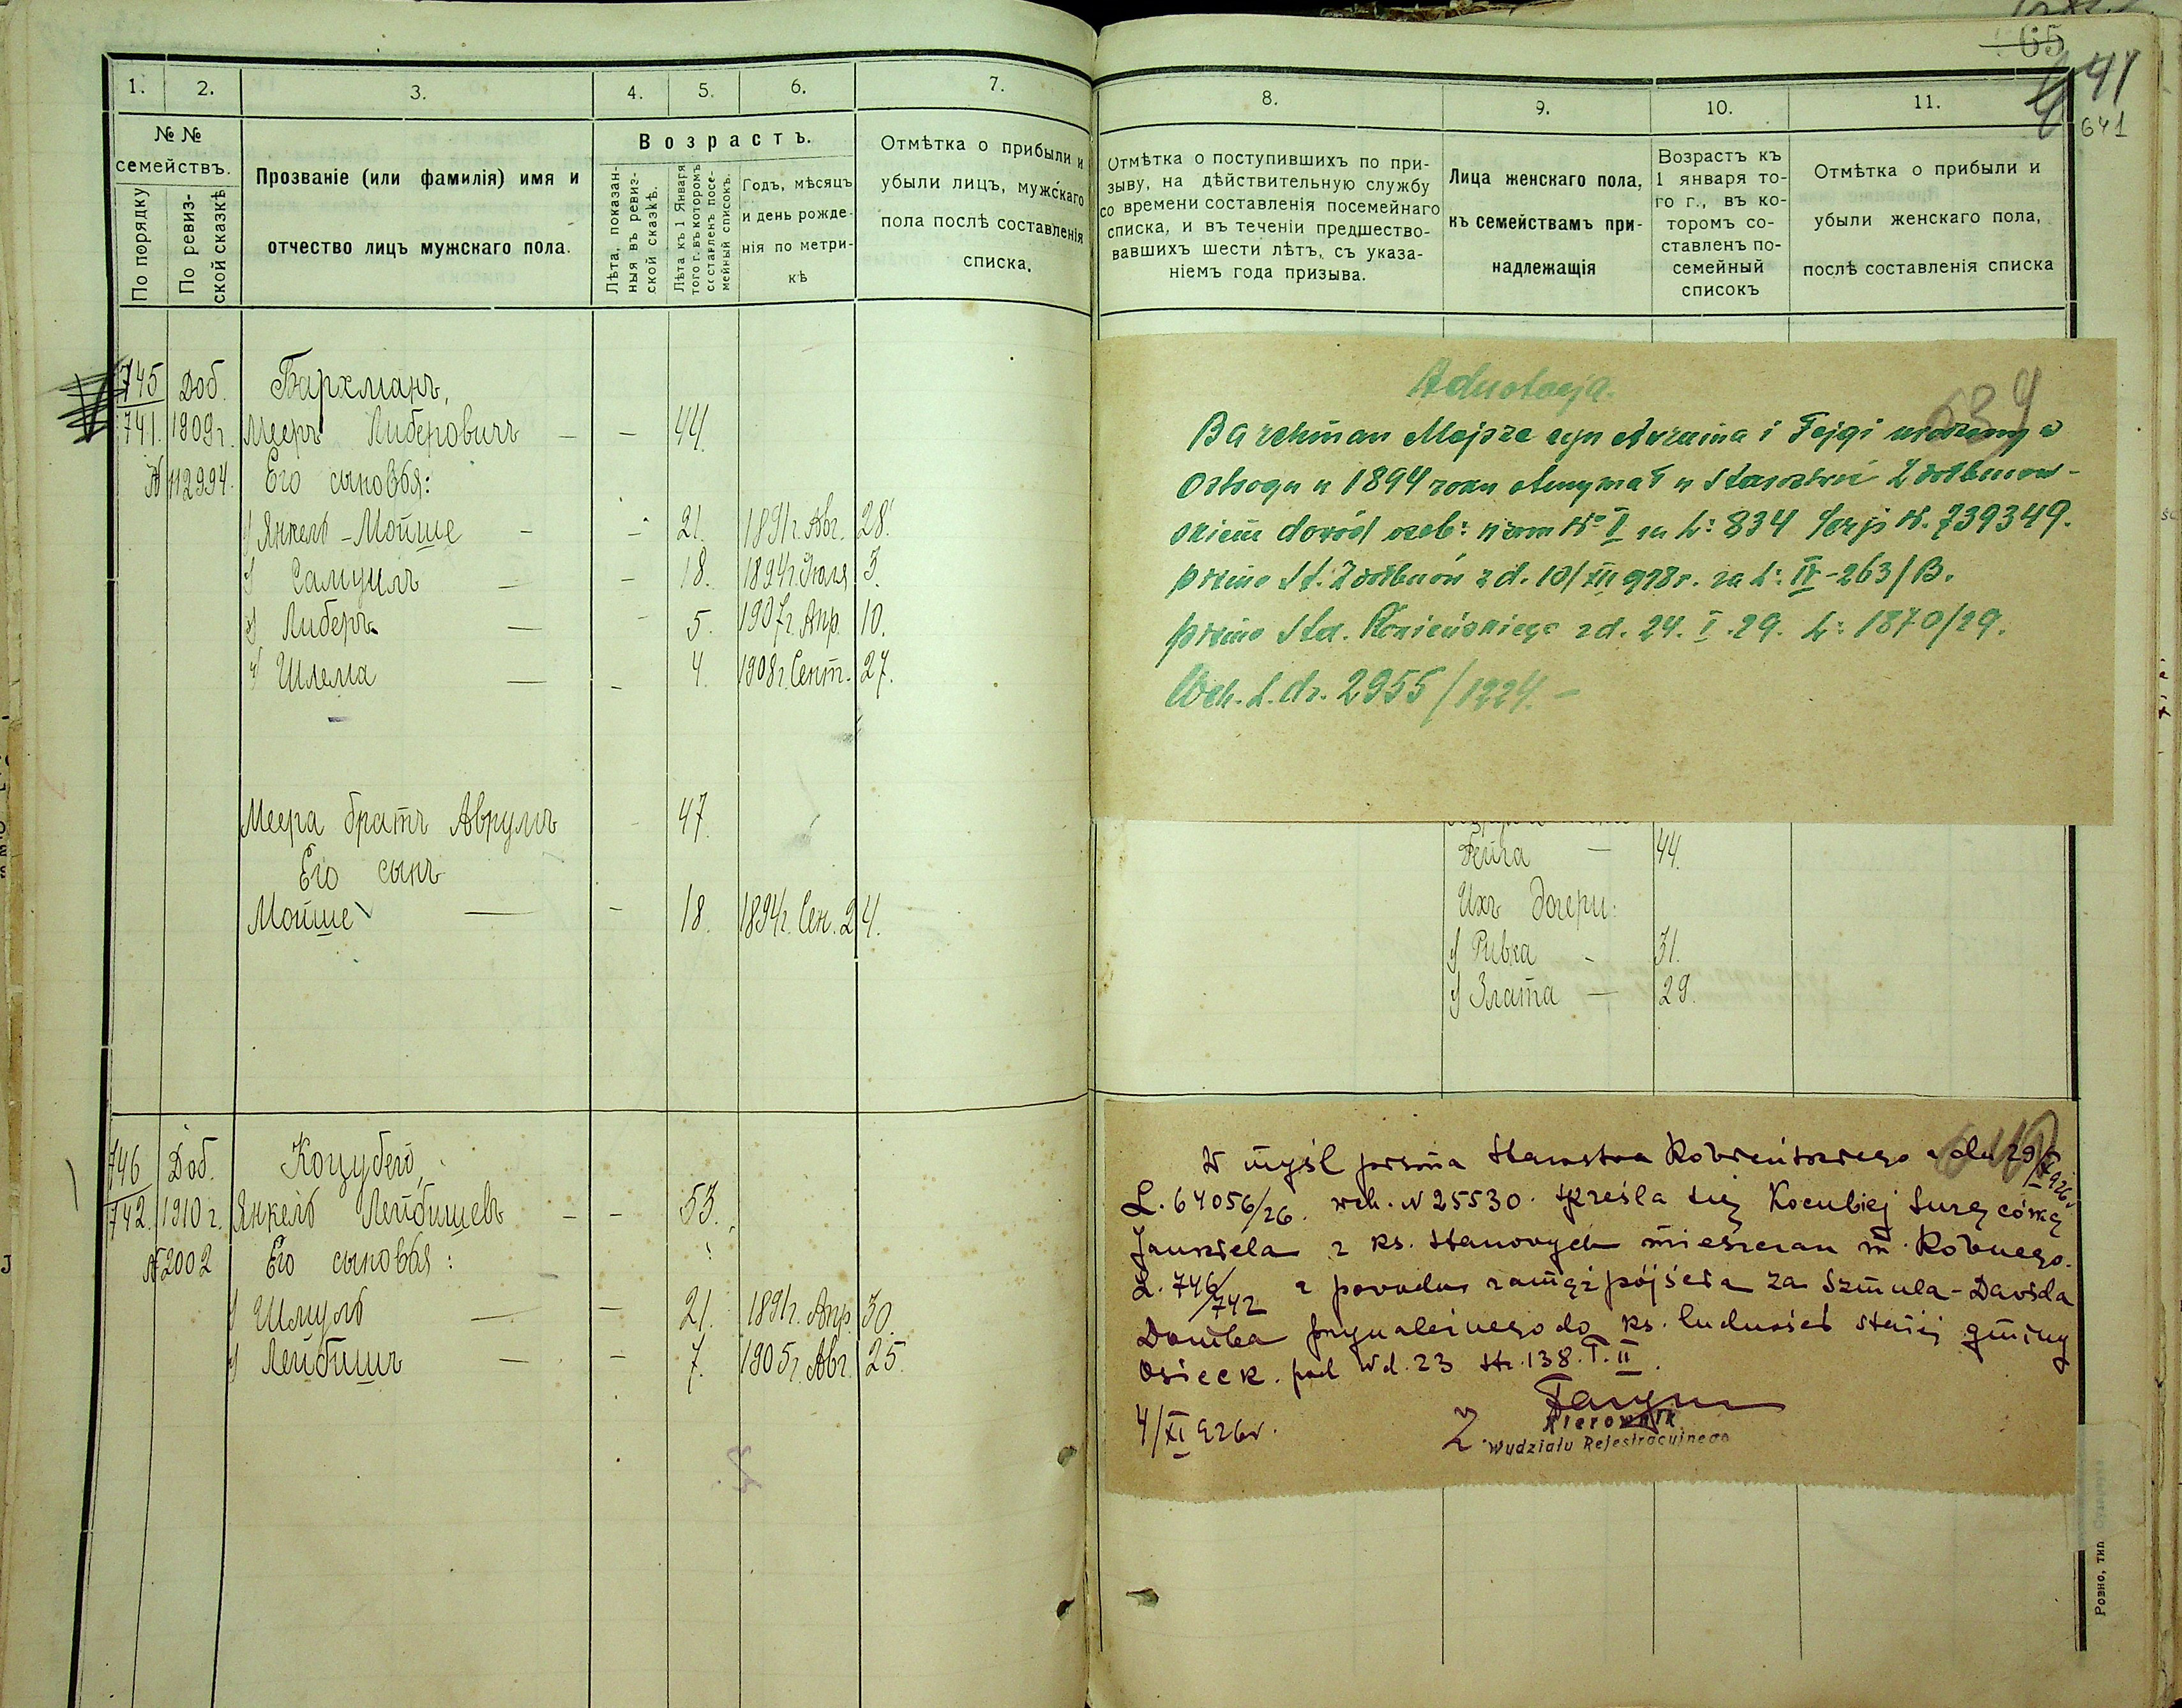 65
41
641
1.
2.
3.
4.
5.
6.
7.
№ №
семействъ.
По порядку
По ревиз-
ской сказкѣ
Прозваніе (или фамилія) имя и
отчество лицъ мужскаго пола.
Возрастъ.
Лѣта, показан-
ныя въ ревиз-
ской сказкѣ.
Лѣта къ 1 Января
того г. въ которомъ
составленъ посе-
мейный списокъ.
Годъ, мѣсяцъ
и день рожде-
нія по метри-
кѣ
Отмѣтка о прибыли и
убыли лицъ, мужскаго
пола послѣ составленія
списка.
745 Доб. Бархманъ,
741. 1909 г. Мееръ Либеровичъ — — 44.
№ 112994. Его сыновья:
Янкель-Мойше — — 21. 1891 г. Авг. 28.
Самуилъ — — 18. 1894 г. Іюля 3.
Либеръ — — 5. 1907 г. Апр. 10.
Шлема — — 4. 1908 г. Сент. 27.
Меера братъ Аврумъ 47.
Его сынъ
Мойше — — 18. 1894 г. Сен. 24.
746 Доб. Коцубей,
742. 1910 г. Янкель Лейбишевъ — — 53.
№ 2002 Его сыновья:
Шмуль — — 21. 1891 г. Апр. 30.
Лейбишъ — — 7. 1905 г. Авг. 25.
8.
9.
10.
11.
Отмѣтка о поступившихъ по при-
зыву, на дѣйствительную службу
со времени составленія посемейнаго
списка, и въ теченіи предшество-
вавшихъ шести лѣтъ, съ указа-
ніемъ года призыва.
Лица женскаго пола,
къ семействамъ при-
надлежащія
Возрастъ къ
1 января то-
го г., въ ко-
торомъ со-
ставленъ по-
семейный
списокъ
Отмѣтка о прибыли и
убыли женскаго пола,
послѣ составленія списка
Adnotacja.
639
Barchman Mojsze syn Avruma i Fejgi urodzony w
Ostrogu w 1894 roku otrzymał w Starostwie Zdołbunow-
skiem dowód osob: wzoru № I za L: 834 Serja № 739349.
pismo St. Zdołbunów z d. 10/XII 928 r. za L: IV-263/B.
pismo Sta. Rówieńskiego z d. 24. I. 29. L: 1870/29.
Wch. L. dz. 2955/1224. —
Фейга — 44.
Ихъ дочери:
Ривка - 31.
Злата — 29.
640
W myśl pisma Starostwa Rówieńskiego z dn 29/X 926
L. 64056/26. wch. N 25530. skreśla się Kocubiej Surę córkę
Jankiela z ks. stanowych mieszczan m. Równego.
L. 746/742 z powodu zamążpójścia za Szmula-Dawida
Domba przynależnego do ks. ludności stałej gminy
Osieck. pod Nd. 23 str. 138. T. II.
4/XI 926 r.
Z
Kierownik
Wydziału Rejestracyjnego
Ровно, тип.